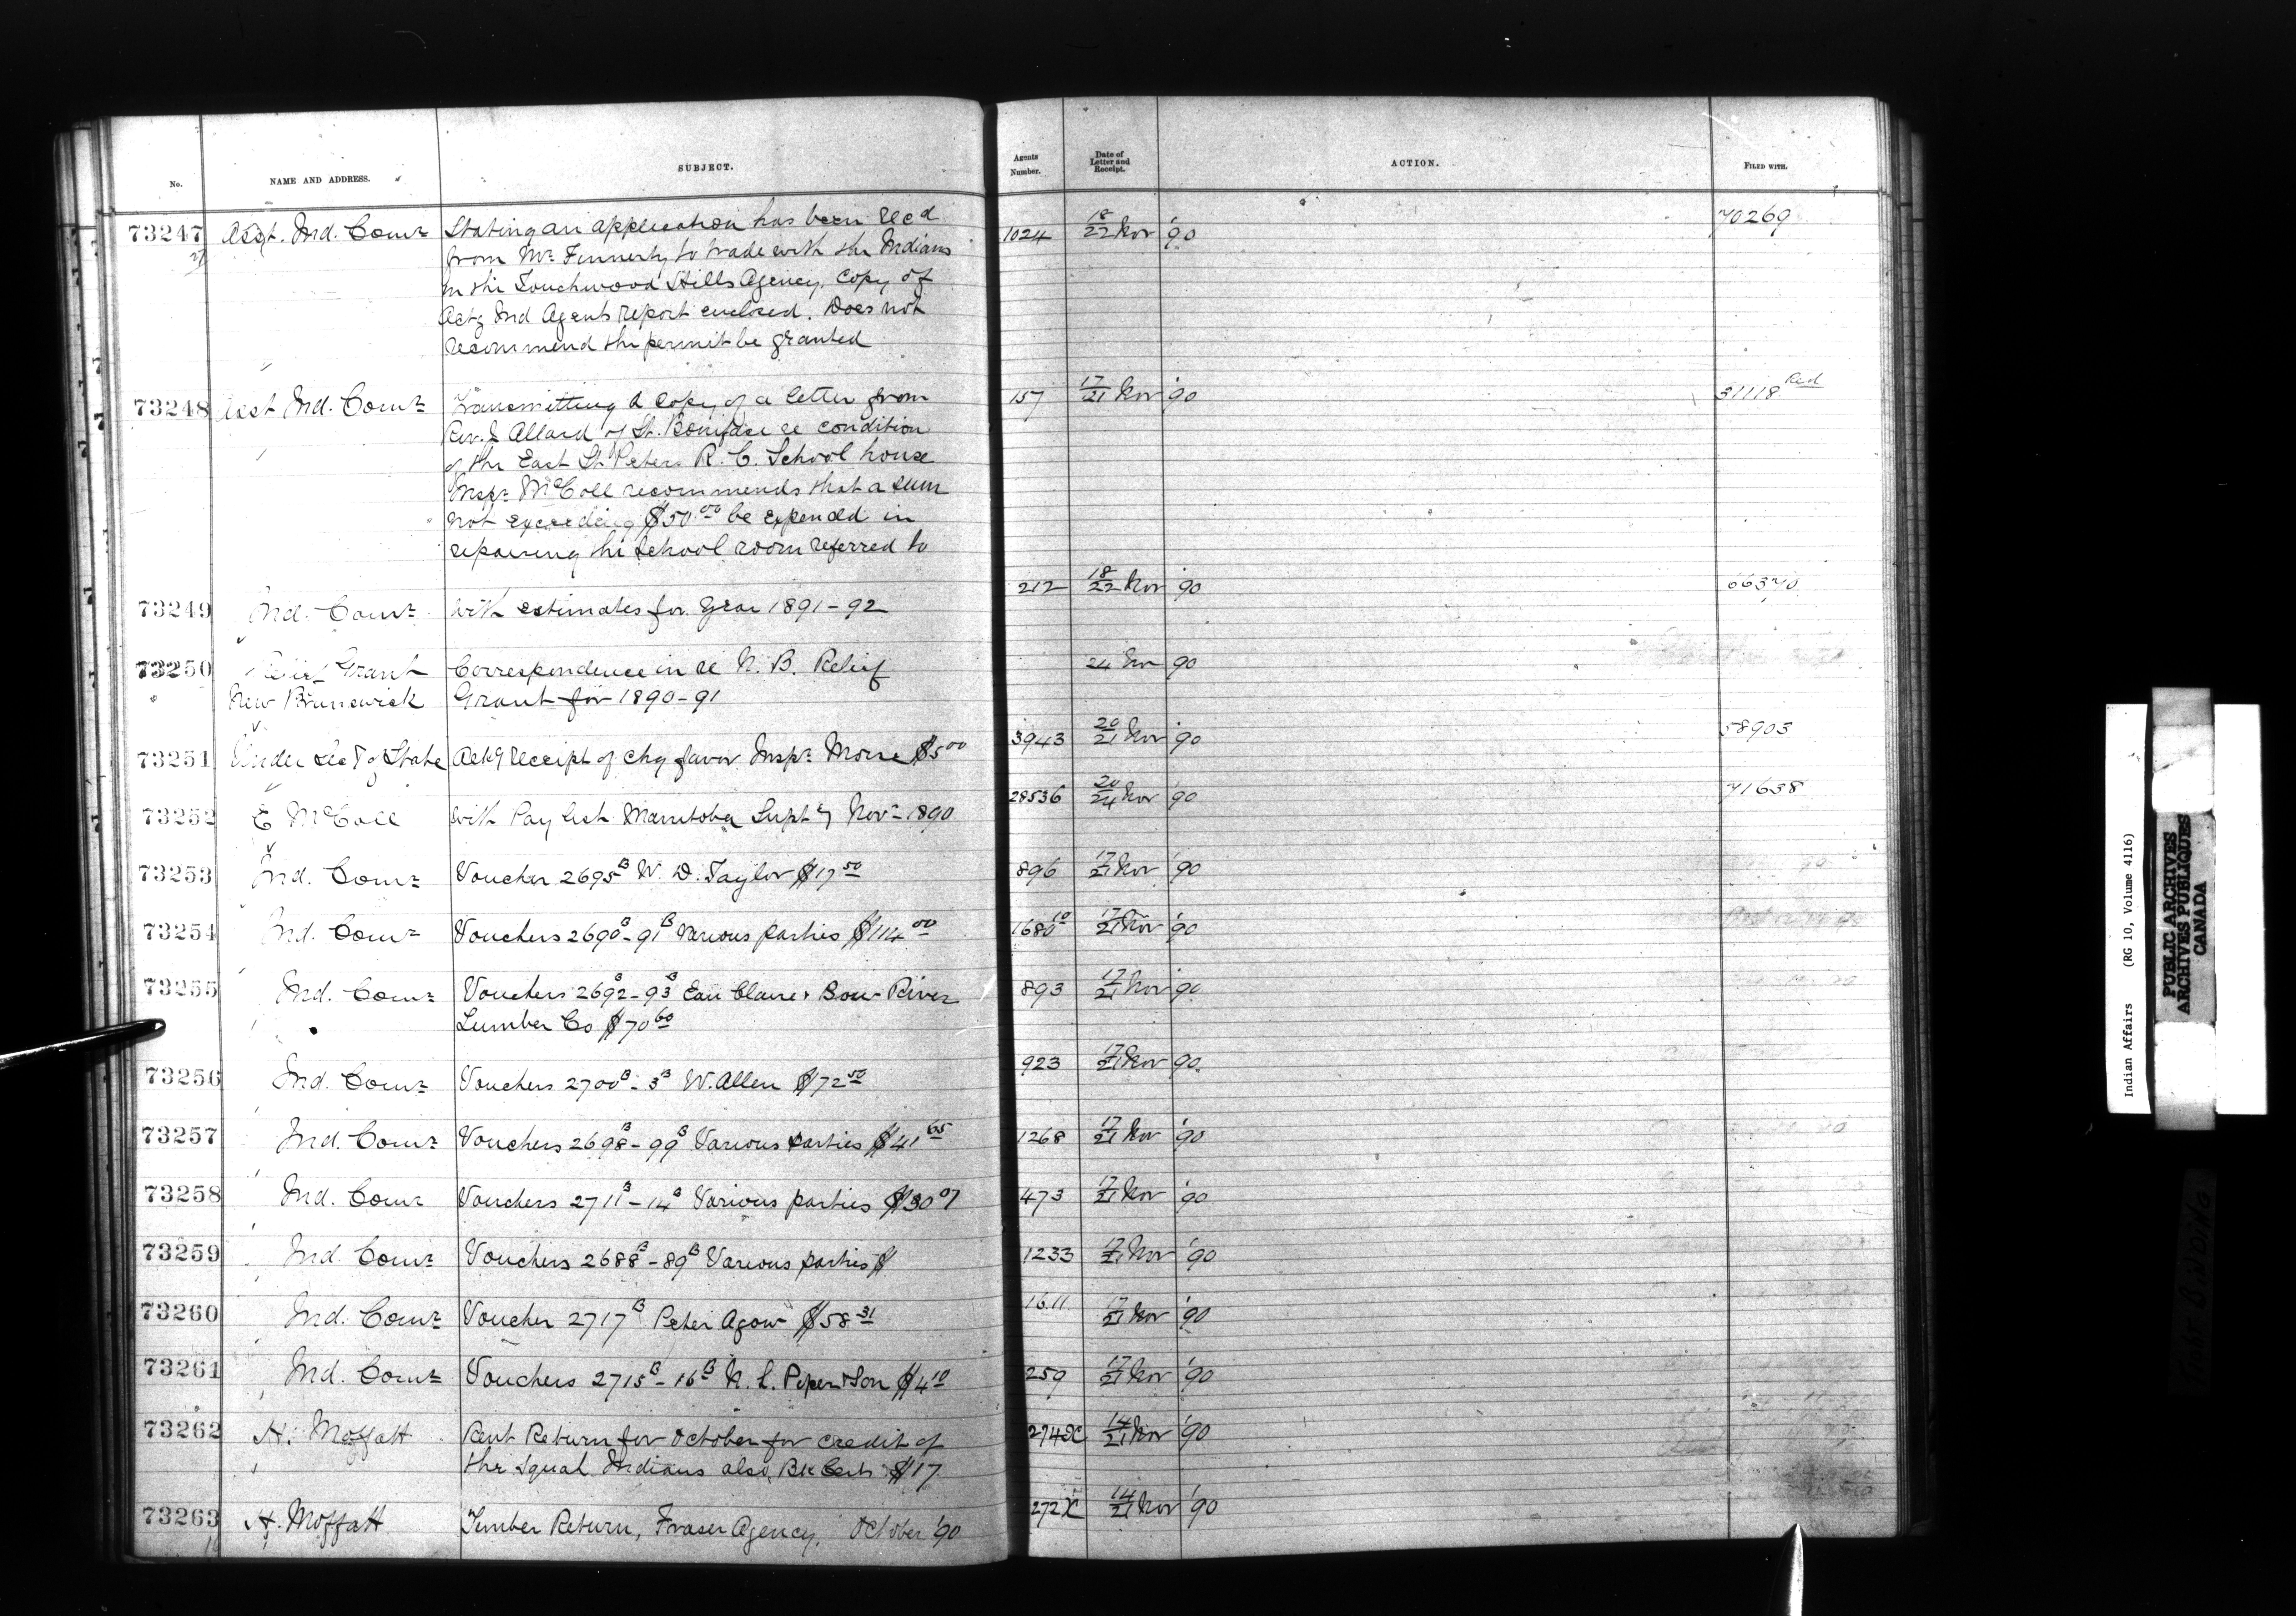 No. NAME AND ADDRESS. SUBJECT. Agents Number. Date of Letter and Receipt. ACTION. FILED WITH.
73247 Asst. Ind. Comr Stating an application has been recd 1024 18/22 Nov '90 70269
from Mr Finnerty to trade with the Indians
in the Touchwood Hills Agency. Copy of
Actg Ind Agents report enclosed. Does not
recommend the permit be granted
73248 Asst Ind. Comr Transmitting a copy of a letter from 157 17/21 Nov '90 31118 Red
Rev. J Allard of St. Boniface re condition
of the East St Peters R. C. School house
Inspr McColl recommends that a sum
not exceeding $50.00 be expended in
repairing the school room referred to
73249 Ind. Comr with estimates for year 1891-92 212 18/22 Nov '90 66370
73250 Relief Grant Correspondence in re N. B. Relief 24 Nov 90
New Brunswick Grant for 1890-91
73251 Under Secy of State Ackg receipt of chq favor Inspr Morse $5 00 3943 20/21 Nov '90 58903
73252 E McColl with Pay list Manitoba Supt'y Nov - 1890 28536 20/24 Nov '90 71638
73253 Ind. Comr Voucher 2695 B W. D. Taylor $17 50 896 17/21 Nov '90
73254 Ind. Comr Vouchers 2690 B - 91 B Various parties $114 00 1680 10 17/21 Nov '90
73255 Ind. Comr Vouchers 2692 - 93 B Eau Claire & Bow River 893 17/21 Nov '90
Lumber Co $70 60
73256 Ind. Comr Vouchers 2700 B - 3 B W. Allen $72 50 923 17/21 Nov 90
73257 Ind. Comr Vouchers 2698 B - 99 B Various parties $41 65 1268 17/21 Nov '90
73258 Ind. Comr Vouchers 2711 B - 14 B Various parties $30 07 473 17/21 Nov '90
73259 Ind. Comr Vouchers 2688 B - 89 B Various parties $ 1233 17/21 Nov '90
73260 Ind. Comr Voucher 2717 B Peter Agow $58 31 1611 17/21 Nov '90
73261 Ind. Comr Vouchers 2715 B - 16 B N. L. Piper & Son $4 10 259 17/21 Nov '90
73262 H. Moffatt Rent Return for October for credit of 274X 14/21 Nov '90
the Squah Indians also, Bk Certs $17
73263 H. Moffatt Timber Return, Fraser Agency, October '90 272X 14/21 Nov '90
Indian Affairs (RG 10, Volume 4116)
PUBLIC ARCHIVES
ARCHIVES PUBLIQUES
CANADA
TIGHT BINDING